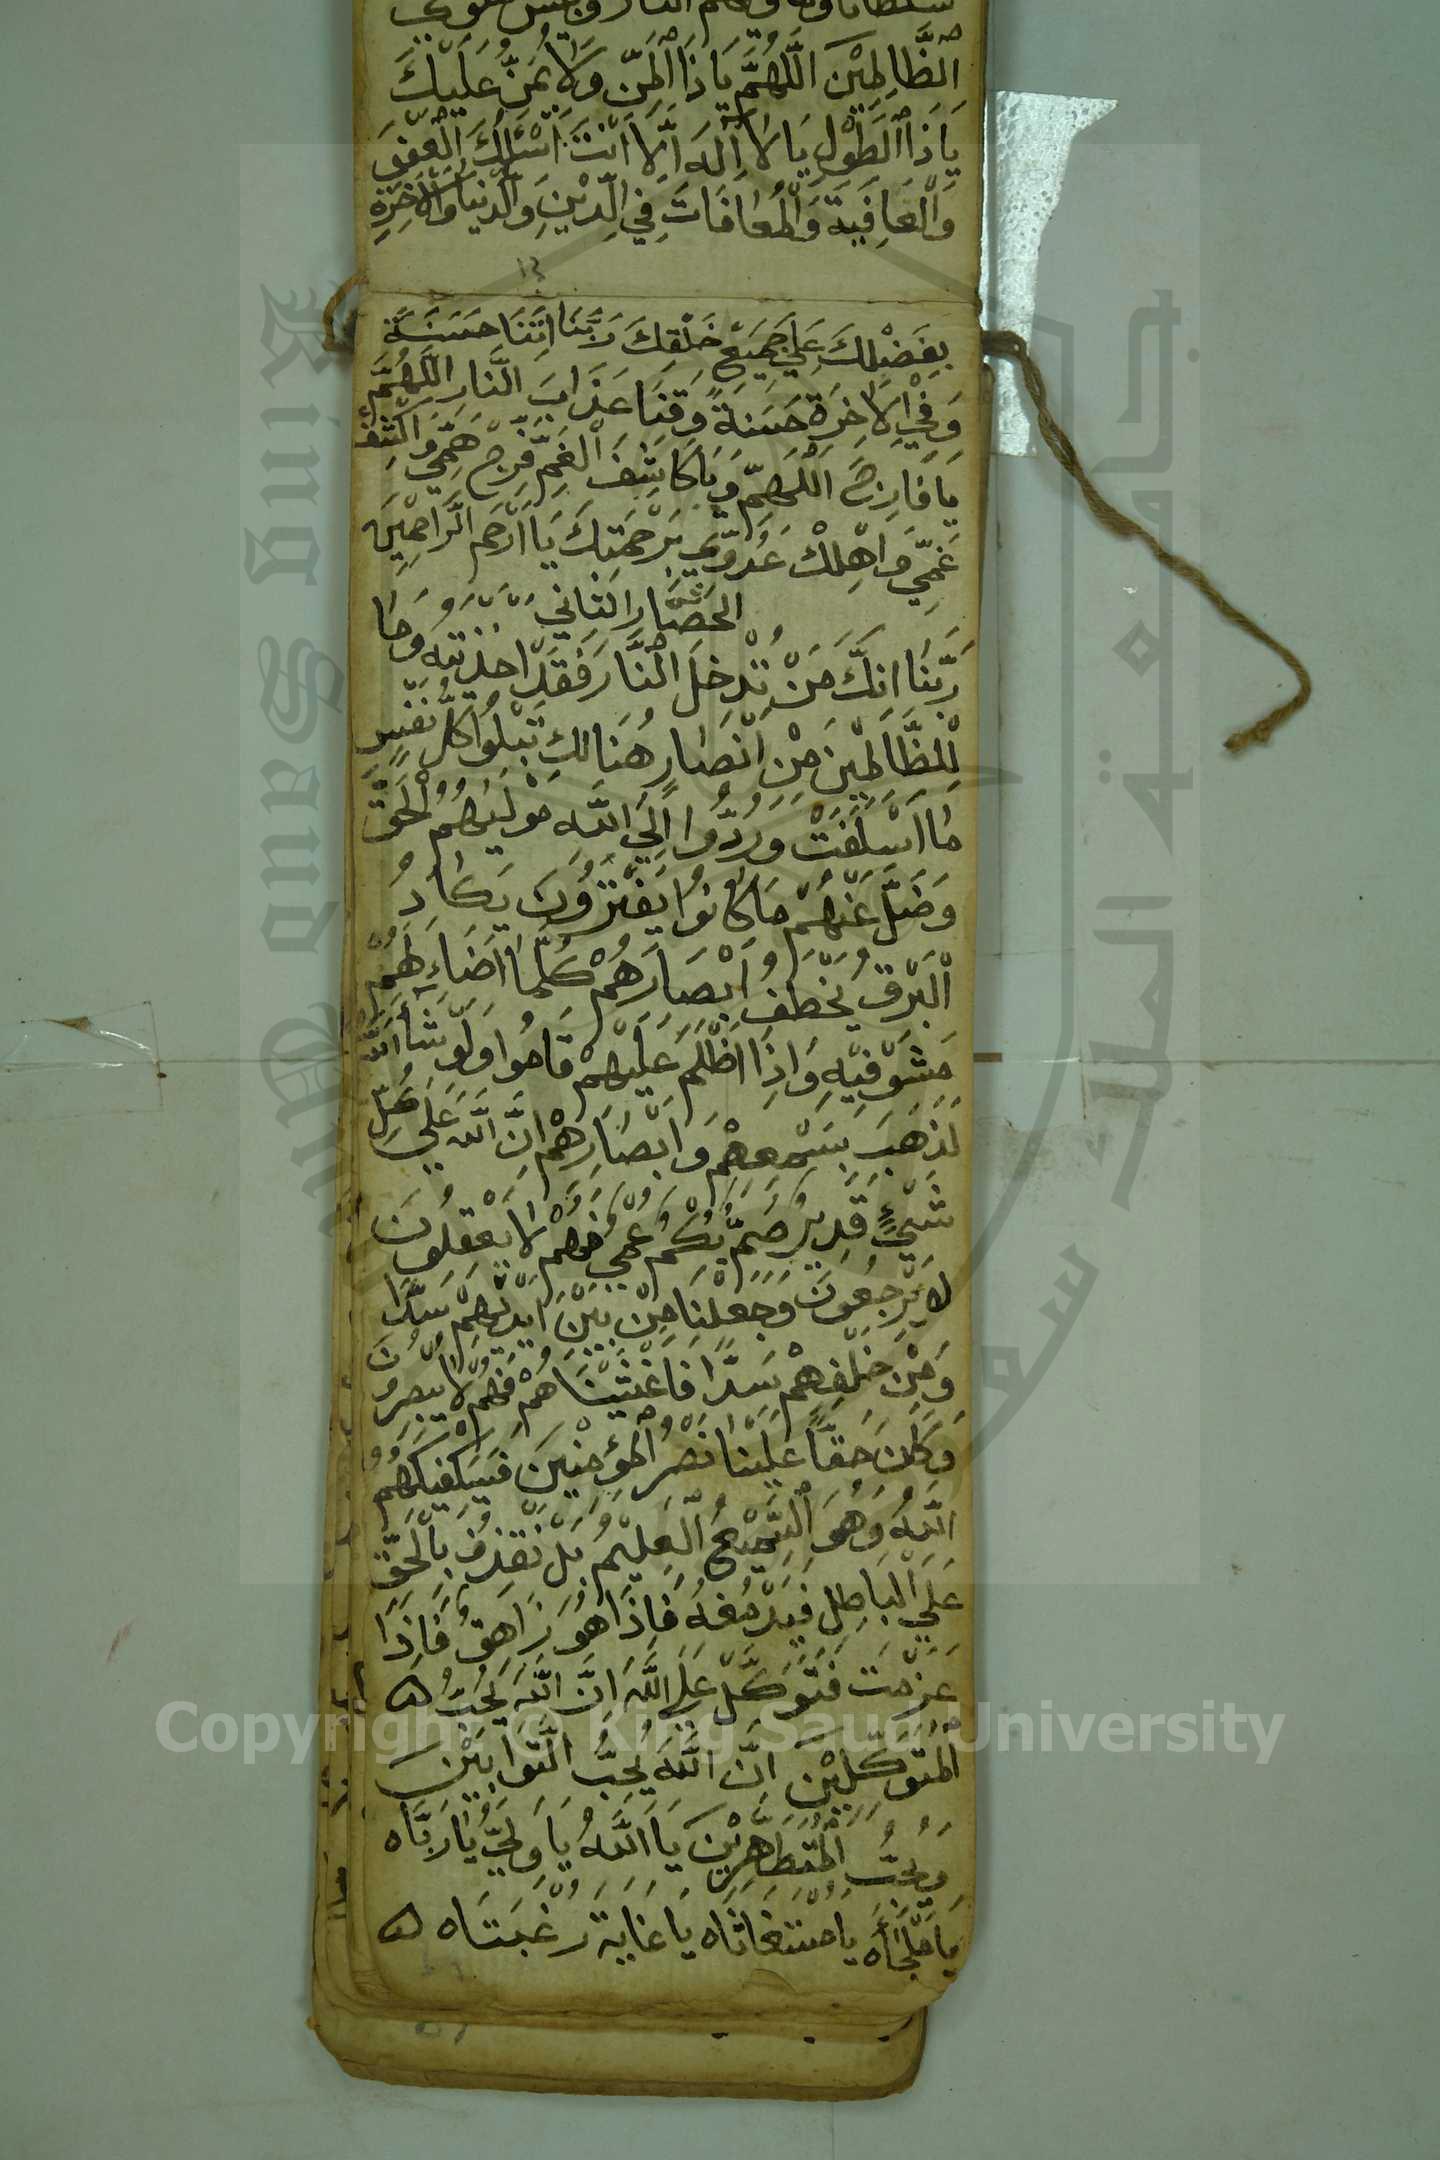 سلطانا وماويهم النار وبئس مثوي
الظَّالِمِيْنَ اَللّٰهُمَّ يَا ذَا الْمَنِّ وَلَا يُمَنُّ عَلَيْكَ
يَا ذَا الطَّوْلِ يَا لَا اِلٰهَ اِلَّا اَنْتَ اَسْئَلُكَ الْعَفْوَ
وَالْعَافِيَةَ وَالْمُعَافَاتَ فِي الدِّيْنِ وَالدُّنْيَا وَالْاٰخِرَةِ
١٣
بِفَضْلِكَ عَلٰي جَمِيْعِ خَلْقِكَ رَبَّنَا اٰتِنَا حَسَنَةً
وَفِي الْاٰخِرَةِ حَسَنَةً وَقِنَا عَذَابَ النَّارِ اللّٰهُمَّ
يَا فَارِجَ الْهَمِّ وَيَا كَاشِفَ الْغَمِّ فَرِّجْ هَمِّيْ وَاكْشِفْ
غَمِّيْ وَاَهْلِكْ عَدُوِّيْ بِرَحْمَتِكَ يَا اَرْحَمَ الرَّاحِمِيْنَ
الحصار الثاني
رَبَّنَا اِنَّكَ مَنْ تُدْخِلِ النَّارَ فَقَدْ اخذيته وَمَا
لِلظَّالِمِيْنَ مِنْ اَنْصَارٍ هُنَالِكَ تَبْلُوْا كُلُّ نَفْسٍ
مَا اَسْلَفَتْ وَرُدُّوْا اِلَي اللّٰهِ مَوْلٰيهُمُ الْحَقِّ
وَضَلَّ عَنْهُمْ مَا كَانُوْا يَفْتَرُوْنَ يَكَادُ
الْبَرْقُ يَخْطَفُ اَبْصَارَهُمْ كُلَّمَا اَضَاءَ لَهُمْ
مَشَوْ فِيْهِ وَاِذَا اَظْلَمَ عَلَيْهِمْ قَامُوا وَلَوْ شَاءَ اللّٰهُ
لَذَهَبَ بِسَمْعِهِمْ وَاَبْصَارِهِمْ اِنَّ اللّٰهَ عَلٰي كُلِّ
شَيْءٍ قَدِيْرٌ صُمٌّ بُكْمٌ عُمْيٌ فَهُمْ لَا يَعْقِلُوْنَ
لَا يَرْجِعُوْنَ وَجَعَلْنَا مِنْ بَيْنِ اَيْدِيْهِمْ سَدًّا
وَمِنْ خَلْفِهِمْ سَدًّا فَاَغْشَيْنَاهُمْ فَهُمْ لَا يُبْصِرُوْنَ
وَكَانَ حَقًّا عَلَيْنَا نَصْرُ الْمُؤْمِنِيْنَ فَسَيَكْفِيْكَهُمُ
اللّٰهُ وَهُوَ السَّمِيْعُ الْعَلِيْمُ بَلْ نَقْذِفُ بِالْحَقِّ
عَلَي الْبَاطِلِ فَيَدْمَغُهُ فَاِذَا هُوَ زَاهِقٌ فَاِذَا
عَزَمْتَ فَتَوَكَّلْ عَلَي اللّٰهِ اِنَّ اللّٰهَ يُحِبُّ ه
الْمُتَوَكِّلِيْنَ اِنَّ اللّٰهَ يُحِبُّ التَّوَّابِيْنَ
وَيُحِبُّ الْمُتَطَهِّرِيْنَ يَا اَللّٰهُ يَا وَلِيُّ يَا رَبَّاه
يَا مَلْجَأَهُ يَا مُسْتَغَاثَاه يَا غَايَةَ رَغْبَتَاه ه
Copyright © King Saud University